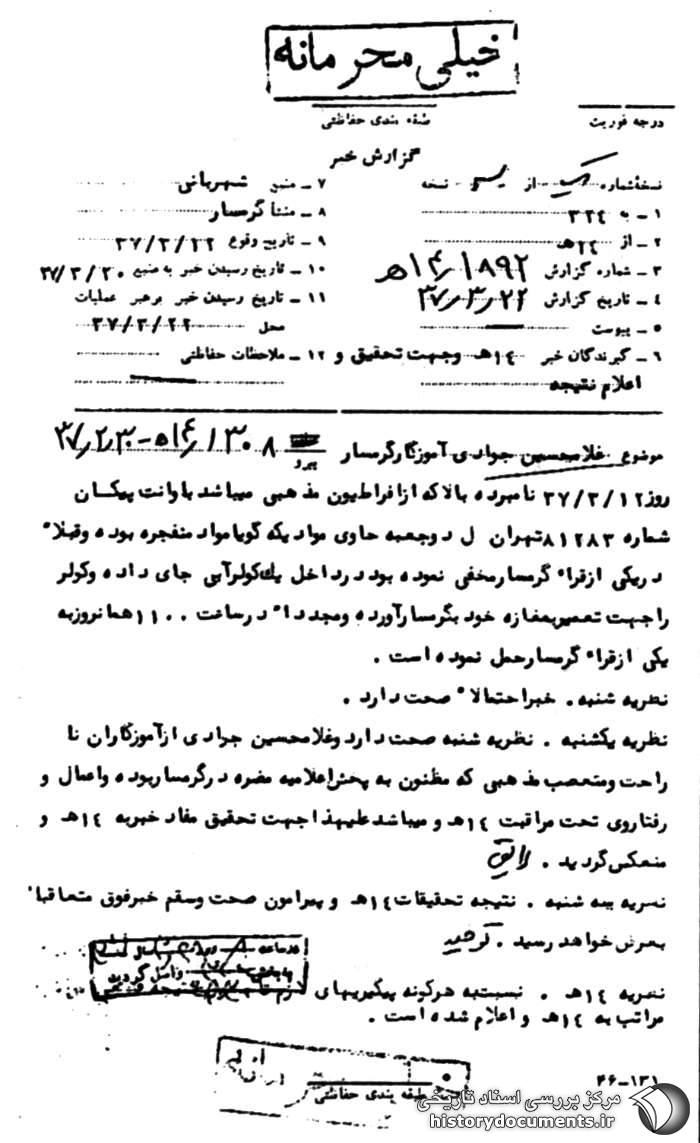 خیلی محرمانه
درجه فوریت
طبقه بندی حفاظتی
گزارش خبر
نسخه شماره یک از نسخه
۱ - به ۳۲۴
۲ - از ۱۴ه‍
۳ - شماره گزارش ۱۸۹۲/۱۴ه‍
۴ - تاریخ گزارش ۳۷/۳/۲۲
۵ - پیوست
۶ - گیرندگان خبر ۱۴ه‍ وجهت تحقیق و
اعلام نتیجه
۷ - منبع شهربانی
۸ - منشأ گرمسار
۹ - تاریخ وقوع
۱۰ - تاریخ رسیدن خبر به منبع ۳۷/۳/۲۰
۱۱ - تاریخ رسیدن خبر برهبر عملیات
محل ۳۷/۳/۲۲
۱۲ - ملاحظات حفاظتی
موضوع غلامحسین جوادی آموزگار گرمسار پیرو
روز ۳۷/۳/۱۲ نامبرده بالا که از افراطیون مذهبی میباشد با وانت پیکان
شماره ۸۱۲۸۳ تهران ل دوجعبه حاوی موادیکه گویا مواد منفجره بوده وقبلا"
دریکی ازقراء گرمسارمخفی نموده بود درداخل یك کولرآبی جای داده وکولر
را جهت تعمیربمغازه خود بگرمسارآورده ومجددا" درساعت ۱۱۰۰ همانروزبه
یکی ازقراء گرمسارحمل نموده است .
نظریه شنبه . خبراحتمالا" صحت دارد .
نظریه یکشنبه . نظریه شنبه صحت دارد وغلامحسین جوادی ازآموزگاران نا
راحت ومتعصب مذهبی که مظنون به پخش اعلامیه مضره درگرمساربوده واعمال و
رفتاروی تحت مراقبت ۱۴ه‍ و میباشد علیهذا جهت تحقیق مفاد خبربه ۱۴ه‍ و
منعکس گردید .
نظریه سه شنبه . نتیجه تحقیقات ۱۴ه‍ و پیرامون صحت وسقم خبرفوق متعاقبا"
بعرض خواهد رسید .
نظریه ۱۴ه‍ . نسبت به هرگونه پیگیریهای لازم
مراتب به ۱۴ه‍ و اعلام شده است .
طبقه بندی حفاظتی
۴۶-۱۳۱
مرکز بررسی اسناد تاریخی
historydocuments.ir